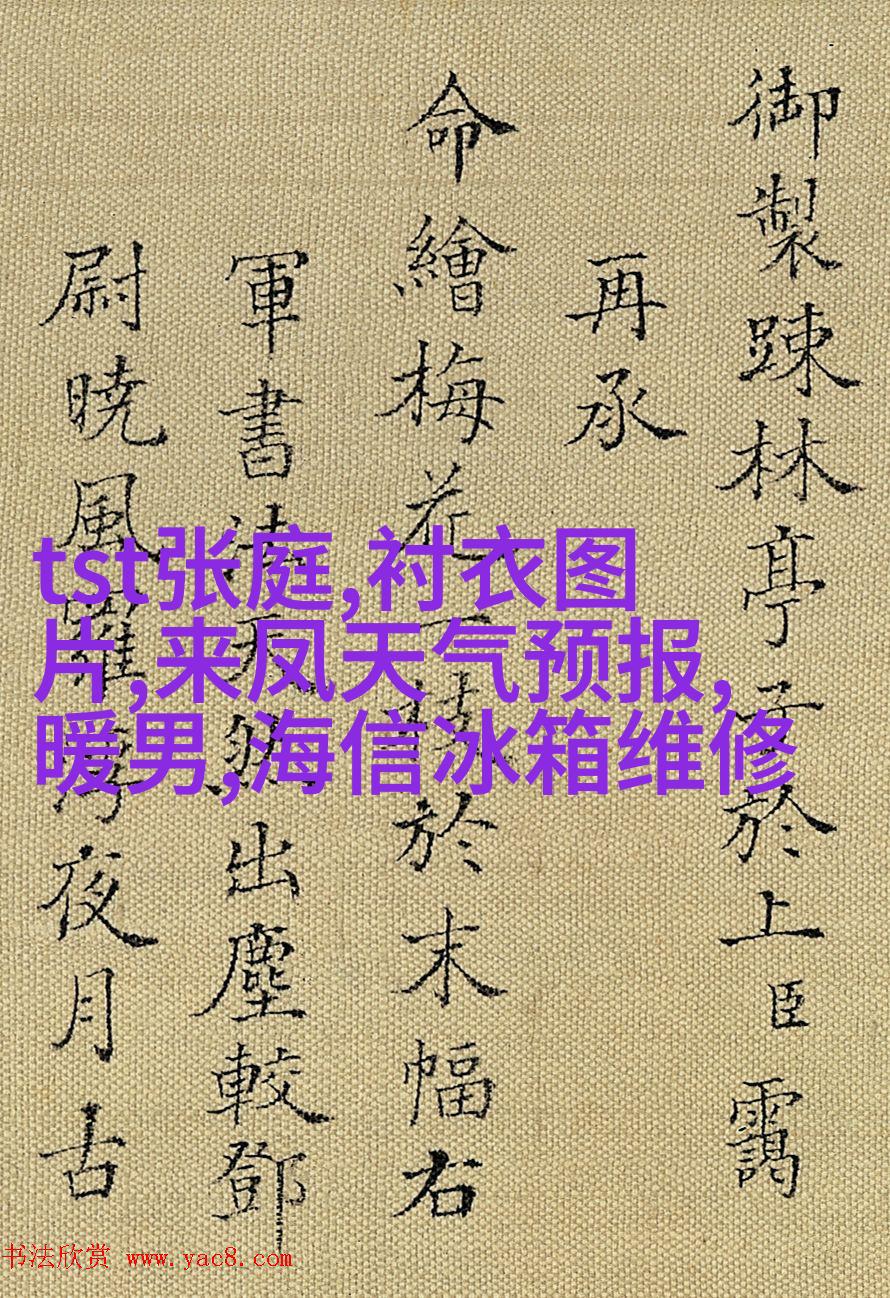 御製踈林亭子於上臣靄
再承
命繪梅花一枝於末幅右
軍書法天然出塵較鄧
尉暁風羅浮夜月古
tst张庭,衬衣图
片,来凤天气预报,
暖男,海信冰箱维修
书法欣赏 www.yac8.com